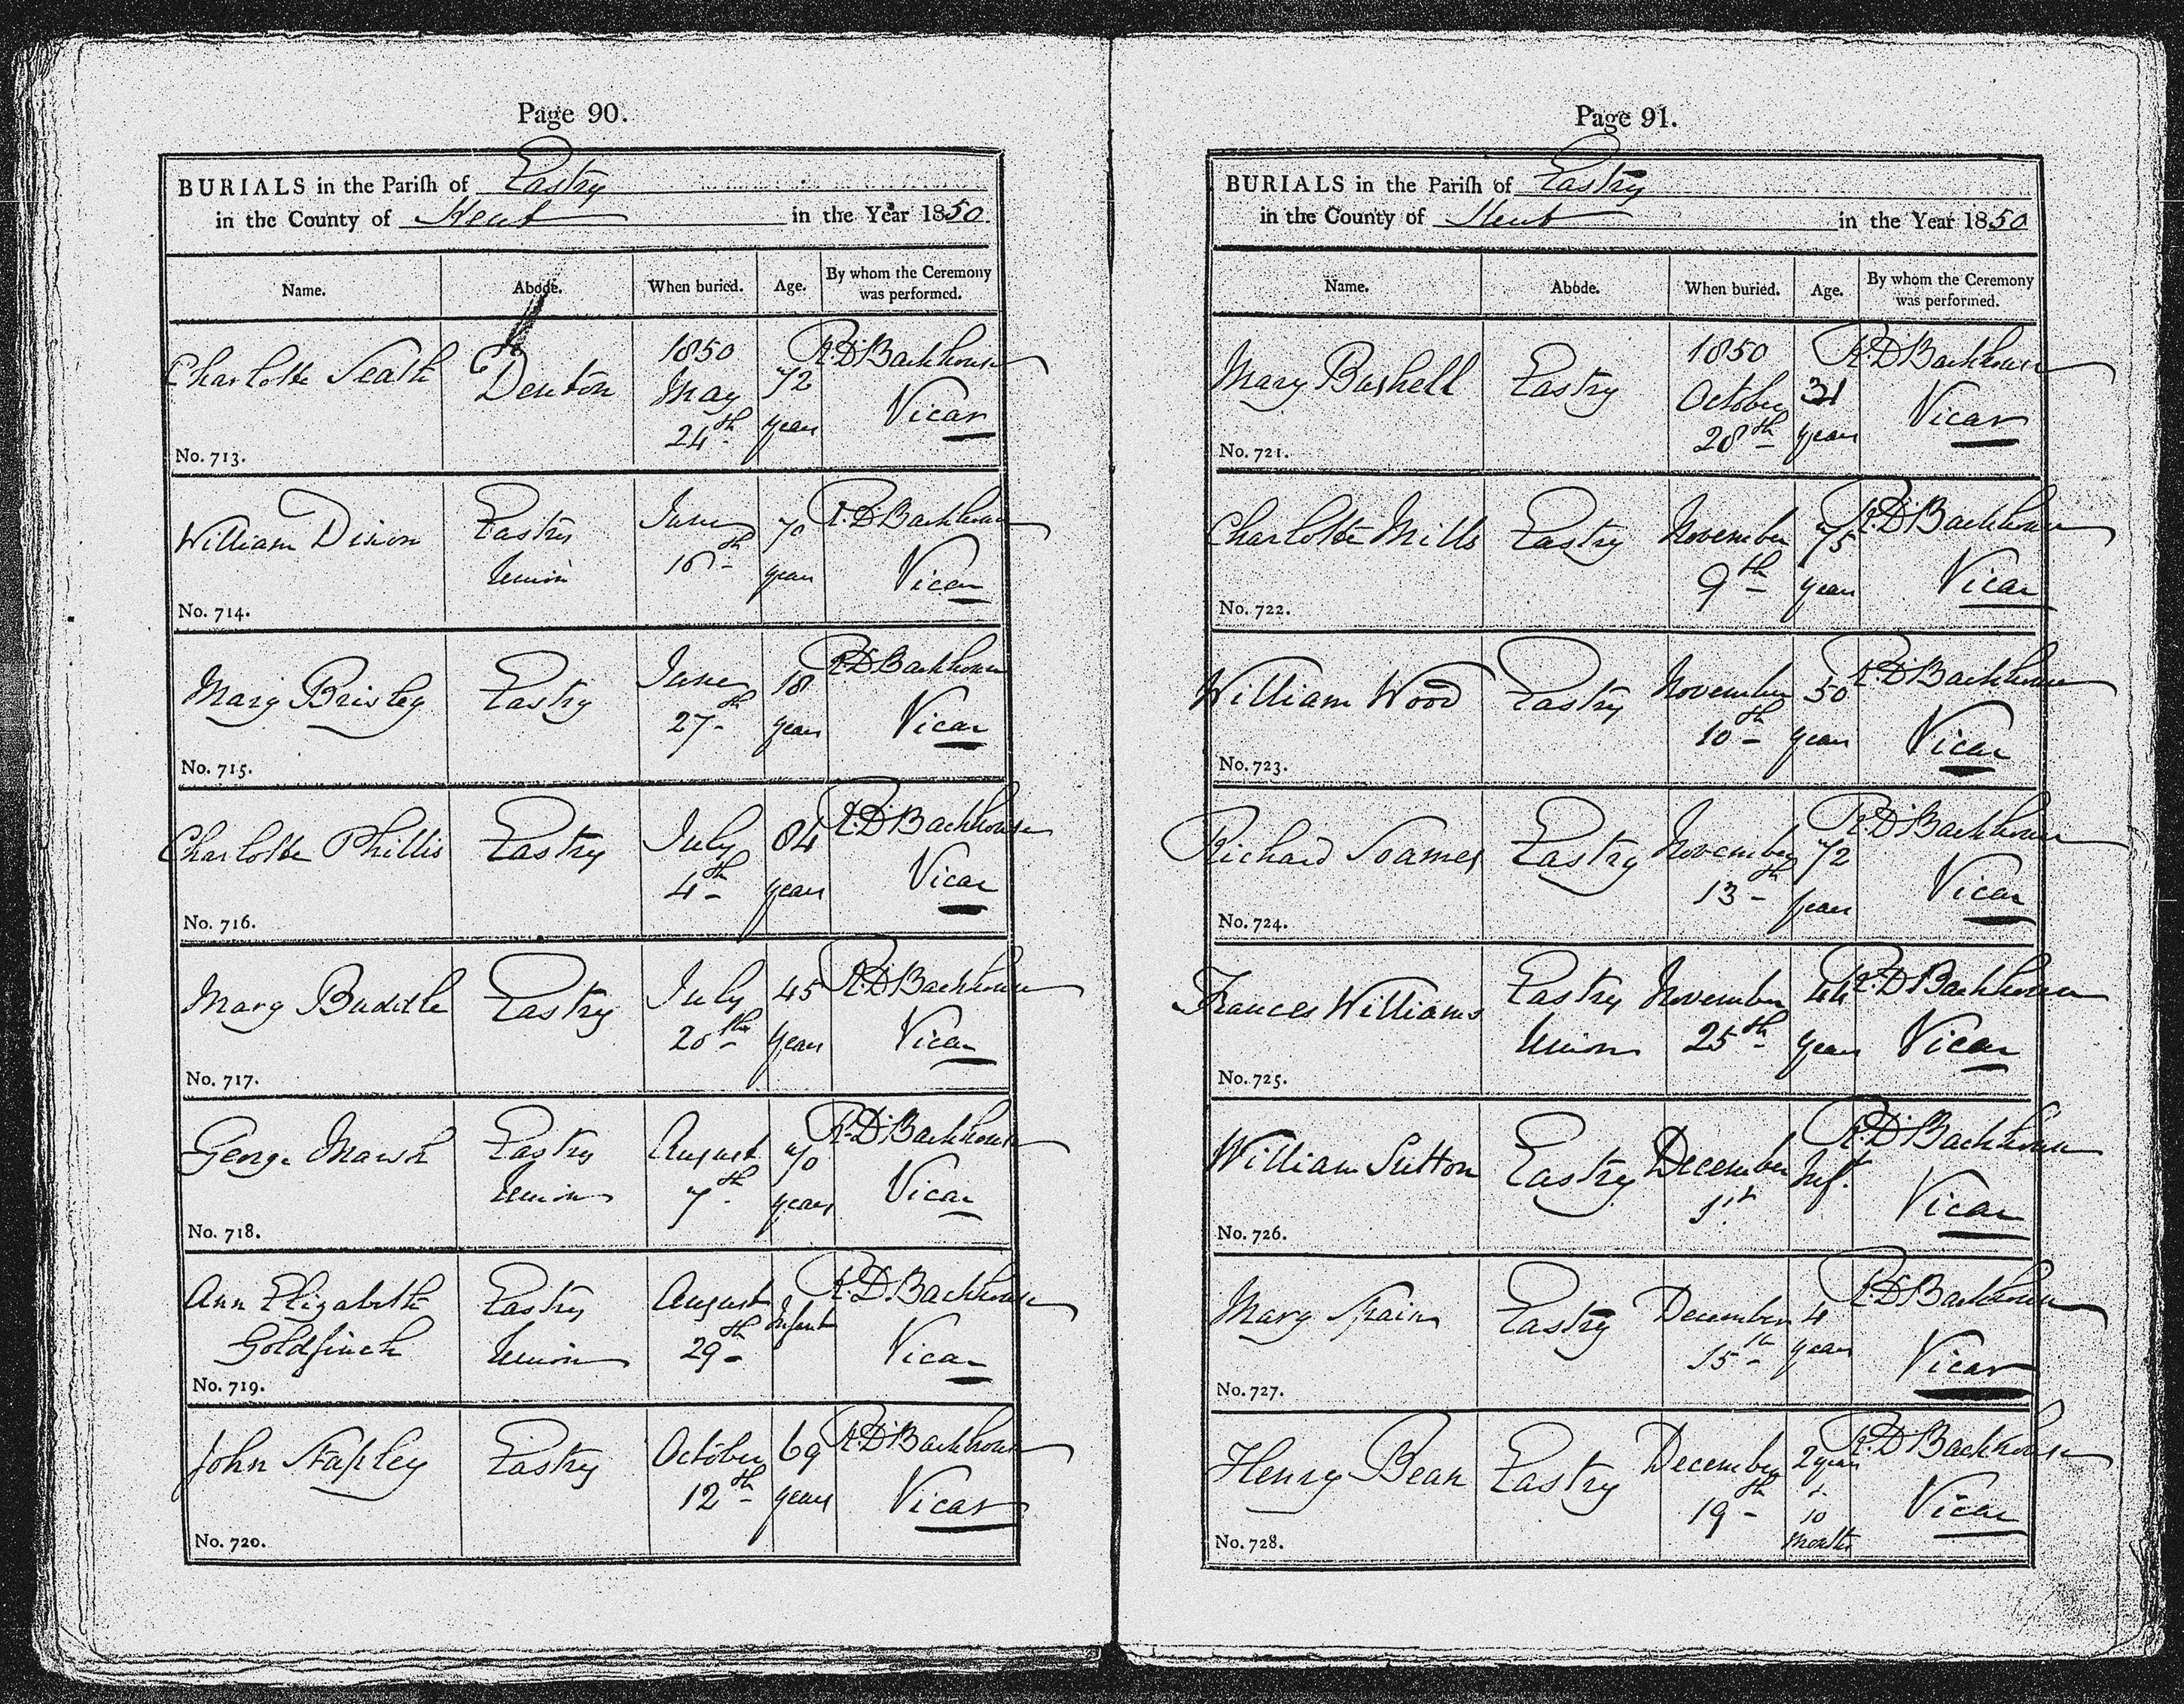 Page 90.
BURIALS in the Parish of Eastry
in the County of Kent in the Year 1850.
Name. Abode. When buried. Age. By whom the Ceremony was performed.
Charlotte Seath Denton 1850 May 24th 72 years R.D. Backhouse Vicar
No. 713.
William Dixon Eastry Union June 16th 70 years R.D. Backhouse Vicar
No. 714.
Mary Brisley Eastry June 27th 18 years R.D. Backhouse Vicar
No. 715.
Charlotte Phillis Eastry July 4th 84 years R.D. Backhouse Vicar
No. 716.
Mary Buddle Eastry July 20th 45 years R.D. Backhouse Vicar
No. 717.
George Marsh Eastry Union August 7th 70 years R.D. Backhouse Vicar
No. 718.
Ann Elizabeth Goldfinch Eastry Union August 29th Infant R.D. Backhouse Vicar
No. 719.
John Stapley Eastry October 12th 69 years R.D. Backhouse Vicar
No. 720.
Page 91.
BURIALS in the Parish of Eastry
in the County of Kent in the Year 1850
Name. Abode. When buried. Age. By whom the Ceremony was performed.
Mary Bushell Eastry 1850 October 28th 31 years R.D. Backhouse Vicar
No. 721.
Charlotte Mills Eastry November 9th 75 years R.D. Backhouse Vicar
No. 722.
William Wood Eastry November 10th 50 years R.D. Backhouse Vicar
No. 723.
Richard Soames Eastry November 13th 72 years R.D. Backhouse Vicar
No. 724.
Frances Williams Eastry Union November 25th 44 years R.D. Backhouse Vicar
No. 725.
William Sutton Eastry December 1st Inft. R.D. Backhouse Vicar
No. 726.
Mary Spain Eastry December 15th 4 years R.D. Backhouse Vicar
No. 727.
Henry Bean Eastry December 19th 2 years & 10 months R.D. Backhouse Vicar
No. 728.